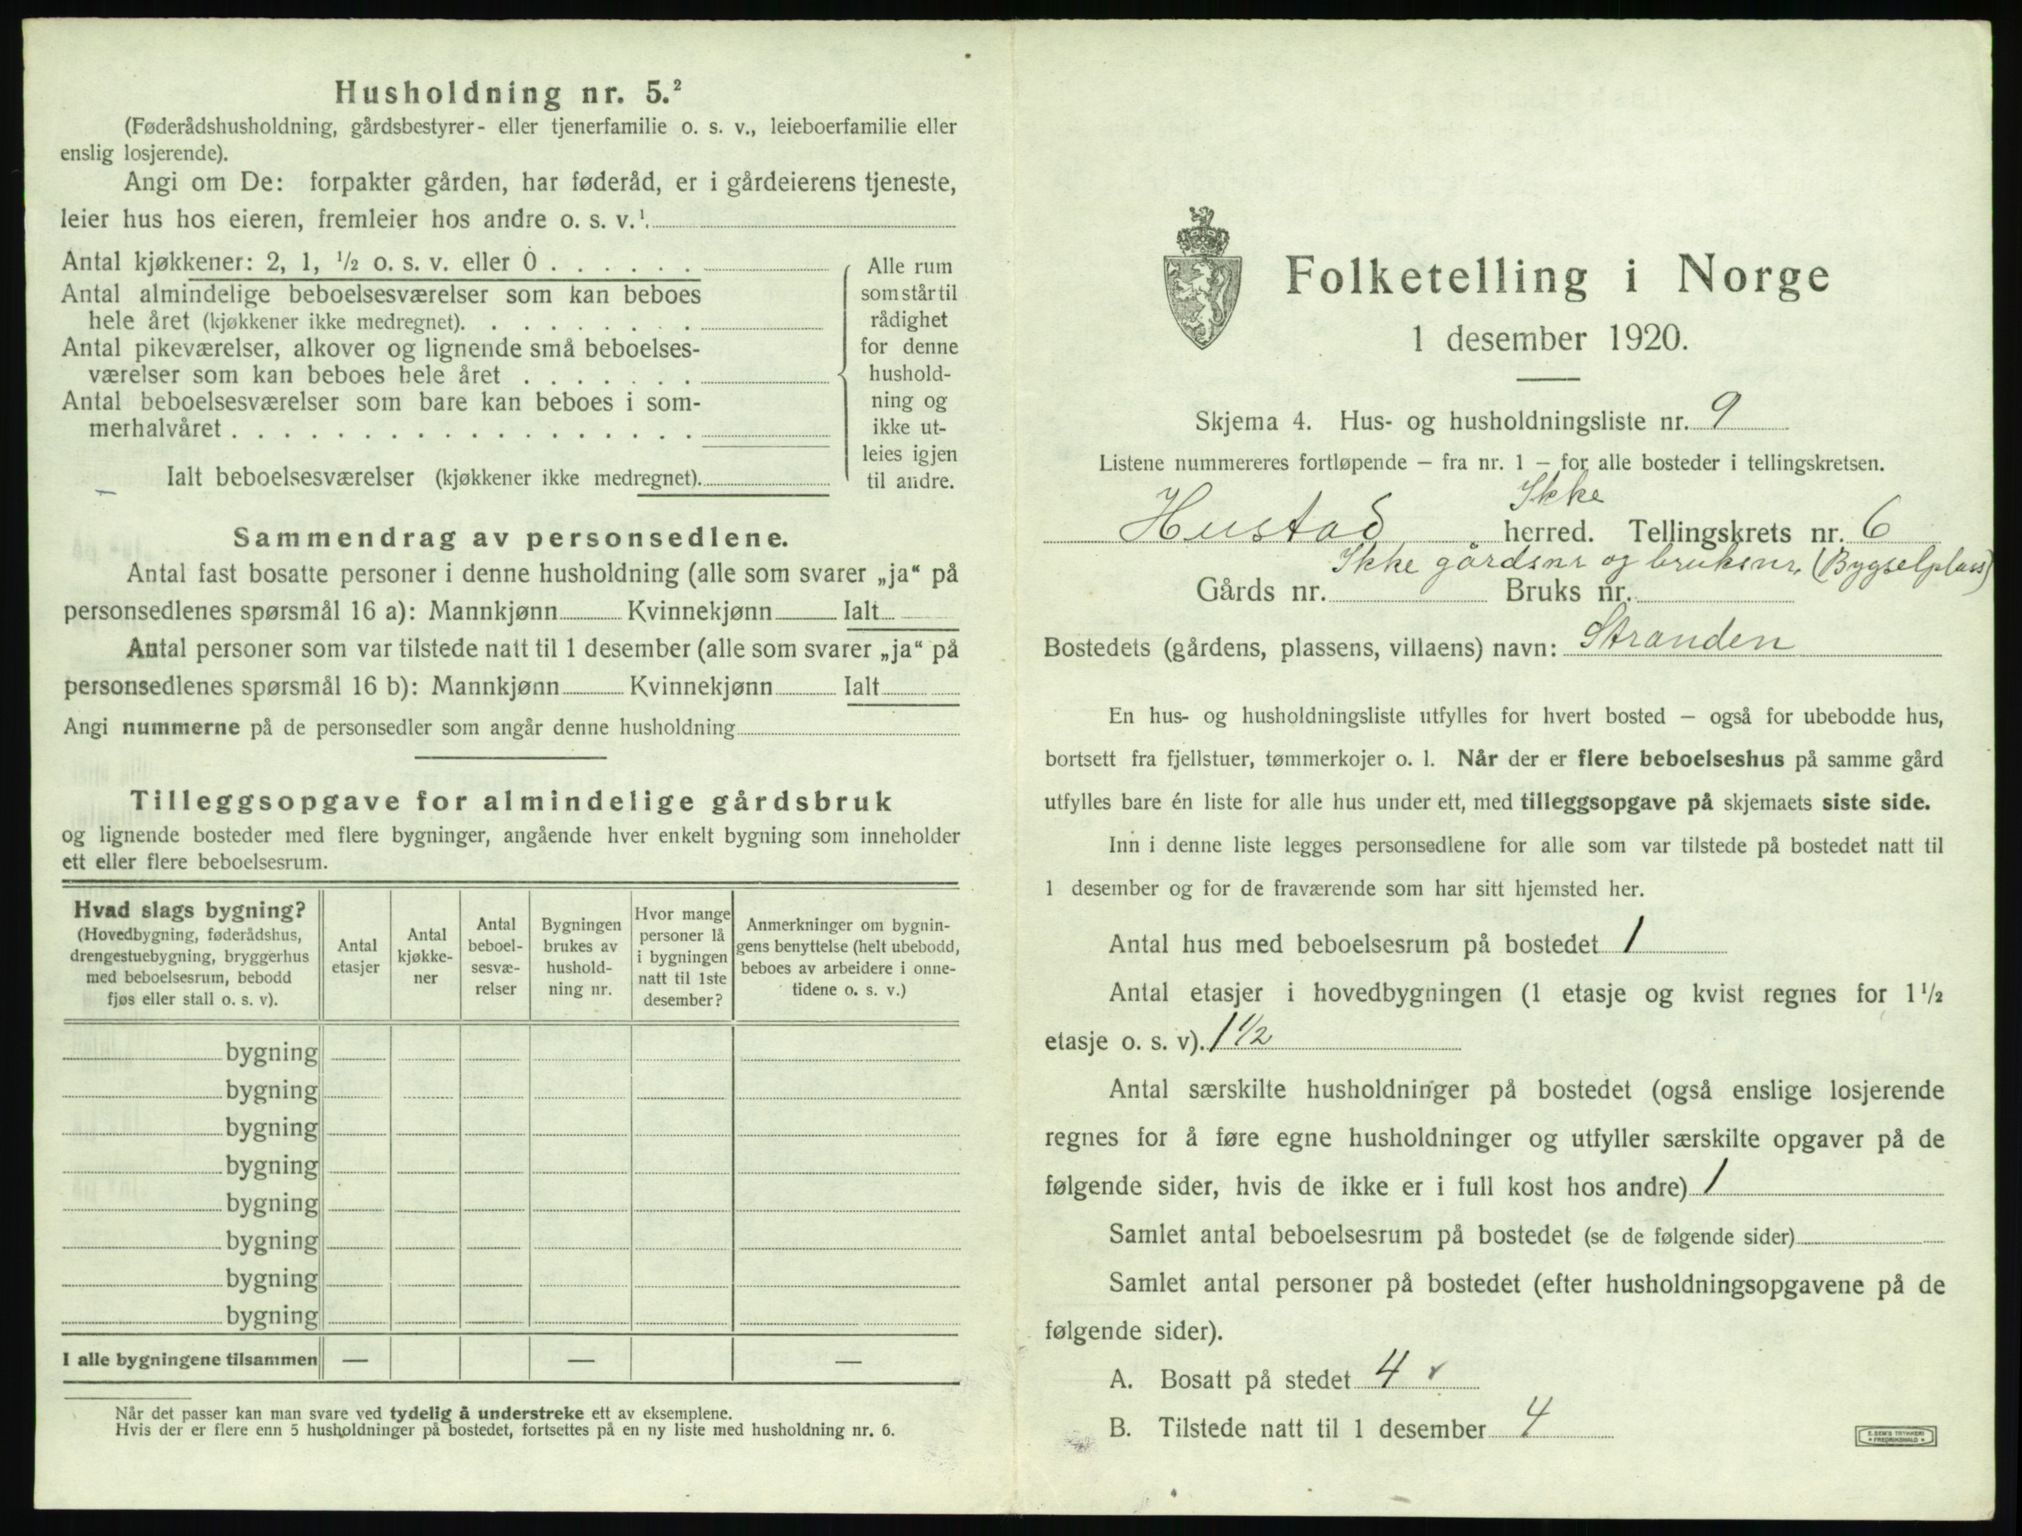 Husholdning nr. 5.²
(Føderådshusholdning, gårdsbestyrer- eller tjenerfamilie o. s. v., leieboerfamilie eller
enslig losjerende).
Angi om De: forpakter gården, har føderåd, er i gårdeierens tjeneste,
leier hus hos eieren, fremleier hos andre o. s. v.¹.
Antal kjøkkener: 2, 1, ½ o. s. v. eller 0 . . . . . .
Antal almindelige beboelsesværelser som kan beboes
hele året (kjøkkener ikke medregnet). . . . . . . . .
Antal pikeværelser, alkover og lignende små beboelses-
værelser som kan beboes hele året . . . . . . .
Antal beboelsesværelser som bare kan beboes i som-
merhalvåret . . . . . . . . . . . . . . . . . .
Ialt beboelsesværelser (kjøkkener ikke medregnet).
Alle rum
som står til
rådighet
for denne
hushold-
ning og
ikke ut-
leies igjen
til andre.
Sammendrag av personsedlene.
Antal fast bosatte personer i denne husholdning (alle som svarer „ja“ på
personsedlenes spørsmål 16 a): Mannkjønn Kvinnekjønn Ialt
Antal personer som var tilstede natt til 1 desember (alle som svarer „ja“ på
personsedlenes spørsmål 16 b): Mannkjønn Kvinnekjønn Ialt
Angi nummerne på de personsedler som angår denne husholdning
Tilleggsopgave for almindelige gårdsbruk
og lignende bosteder med flere bygninger, angående hver enkelt bygning som inneholder
ett eller flere beboelsesrum.
Hvad slags bygning?
(Hovedbygning, føderådshus,
drengestuebygning, bryggerhus
med beboelsesrum, bebodd
fjøs eller stall o. s. v).
Antal
etasjer
Antal
kjøkke-
ner
Antal
beboel-
sesvæ-
relser
Bygningen
brukes av
hushold-
ning nr.
Hvor mange
personer lå
i bygningen
natt til 1ste
desember?
Anmerkninger om bygnin-
gens benyttelse (helt ubebodd,
beboes av arbeidere i onne-
tidene o. s. v.)
bygning
bygning
bygning
bygning
bygning
bygning
bygning
bygning
I alle bygningene tilsammen — — —
Når det passer kan man svare ved tydelig å understreke ett av eksemplene.
Hvis der er flere enn 5 husholdninger på bostedet, fortsettes på en ny liste med husholdning nr. 6.
Folketelling i Norge
1 desember 1920.
Skjema 4. Hus- og husholdningsliste nr. 9
Listene nummereres fortløpende – fra nr. 1 – for alle bosteder i tellingskretsen.
Ikke
Hustad herred. Tellingskrets nr. 6
Ikke gårdsnr og bruksnr. (Bygselplass)
Gårds nr. Bruks nr.
Bostedets (gårdens, plassens, villaens) navn: Stranden
En hus- og husholdningsliste utfylles for hvert bosted – også for ubebodde hus,
bortsett fra fjellstuer, tømmerkojer o. l. Når der er flere beboelseshus på samme gård
utfylles bare én liste for alle hus under ett, med tilleggsopgave på skjemaets siste side.
Inn i denne liste legges personsedlene for alle som var tilstede på bostedet natt til
1 desember og for de fraværende som har sitt hjemsted her.
Antal hus med beboelsesrum på bostedet 1
Antal etasjer i hovedbygningen (1 etasje og kvist regnes for 1½
etasje o. s. v). 1½
Antal særskilte husholdninger på bostedet (også enslige losjerende
regnes for å føre egne husholdninger og utfyller særskilte opgaver på de
følgende sider, hvis de ikke er i full kost hos andre) 1
Samlet antal beboelsesrum på bostedet (se de følgende sider)
Samlet antal personer på bostedet (efter husholdningsopgavene på de
følgende sider).
A. Bosatt på stedet 4
B. Tilstede natt til 1 desember 4
E. SEM'S TRYKKERI
FREDRIKSHALD